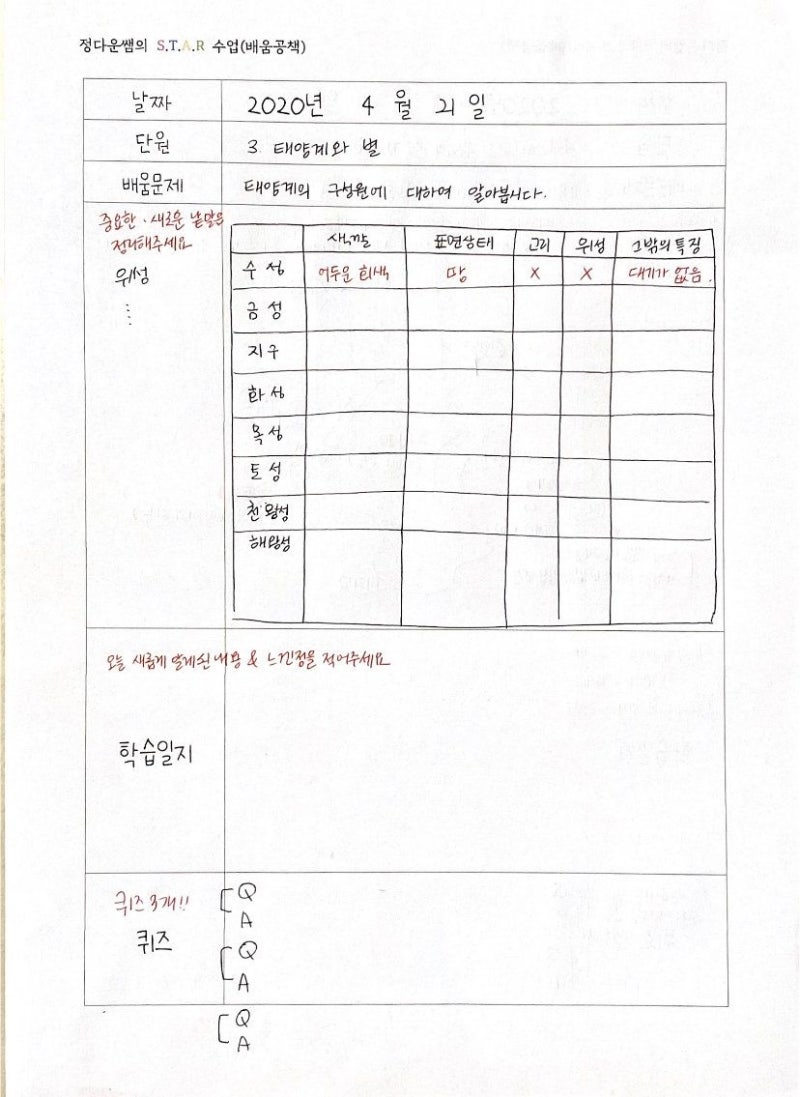 정다운쌤의 S.T.A.R 수업(배움공책)
날짜 2020년 4월 21일
단원 3 태양계와 별
배움문제 태양계의 구성원에 대하여 알아봅시다.
중요한·새로운 낱말을
정리해주세요
위성
⋮
색깔 표면상태 고리 위성 그밖의특징
수성 어두운 회색 땅 X X 대기가 없음.
금성
지구
화성
목성
토성
천왕성
해왕성
오늘 새롭게 알게되신 내용 & 느낀점을 적어주세요
학습일지
퀴즈 3개!!
퀴즈
Q
A
Q
A
Q
A